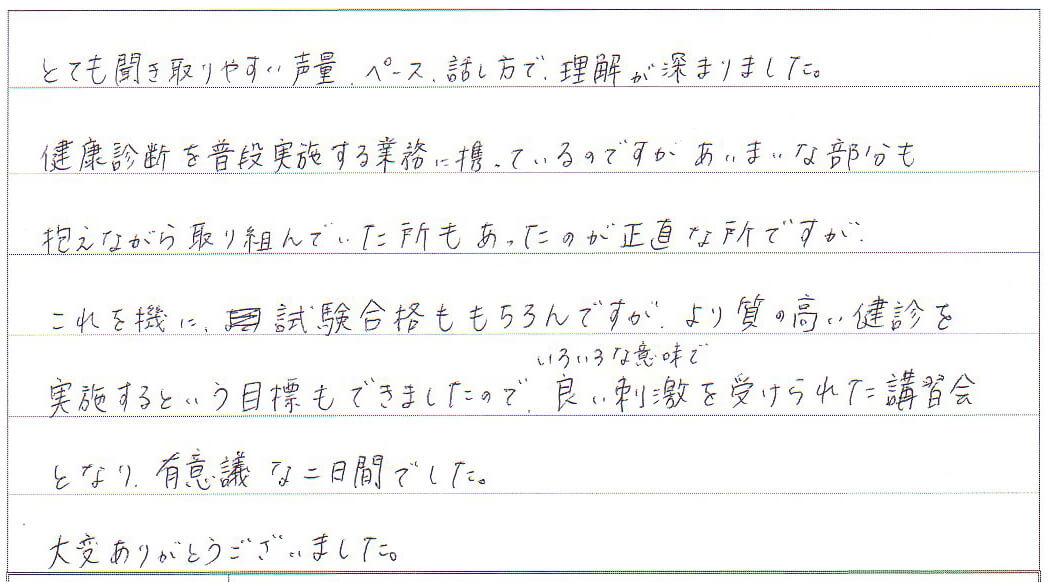 とても聞き取りやすい声量、ペース、話し方で、理解が深まりました。
健康診断を普段実施する業務に携っているのですが あいまいな部分も
抱えながら取り組んでいた所もあったのが正直な所ですが、
これを機に、試験合格ももちろんですが、より質の高い健診を
いろいろな意味で
実施するという目標もできましたので、良い刺激を受けられた講習会
となり、有意議な二日間でした。
大変ありがとうございました。